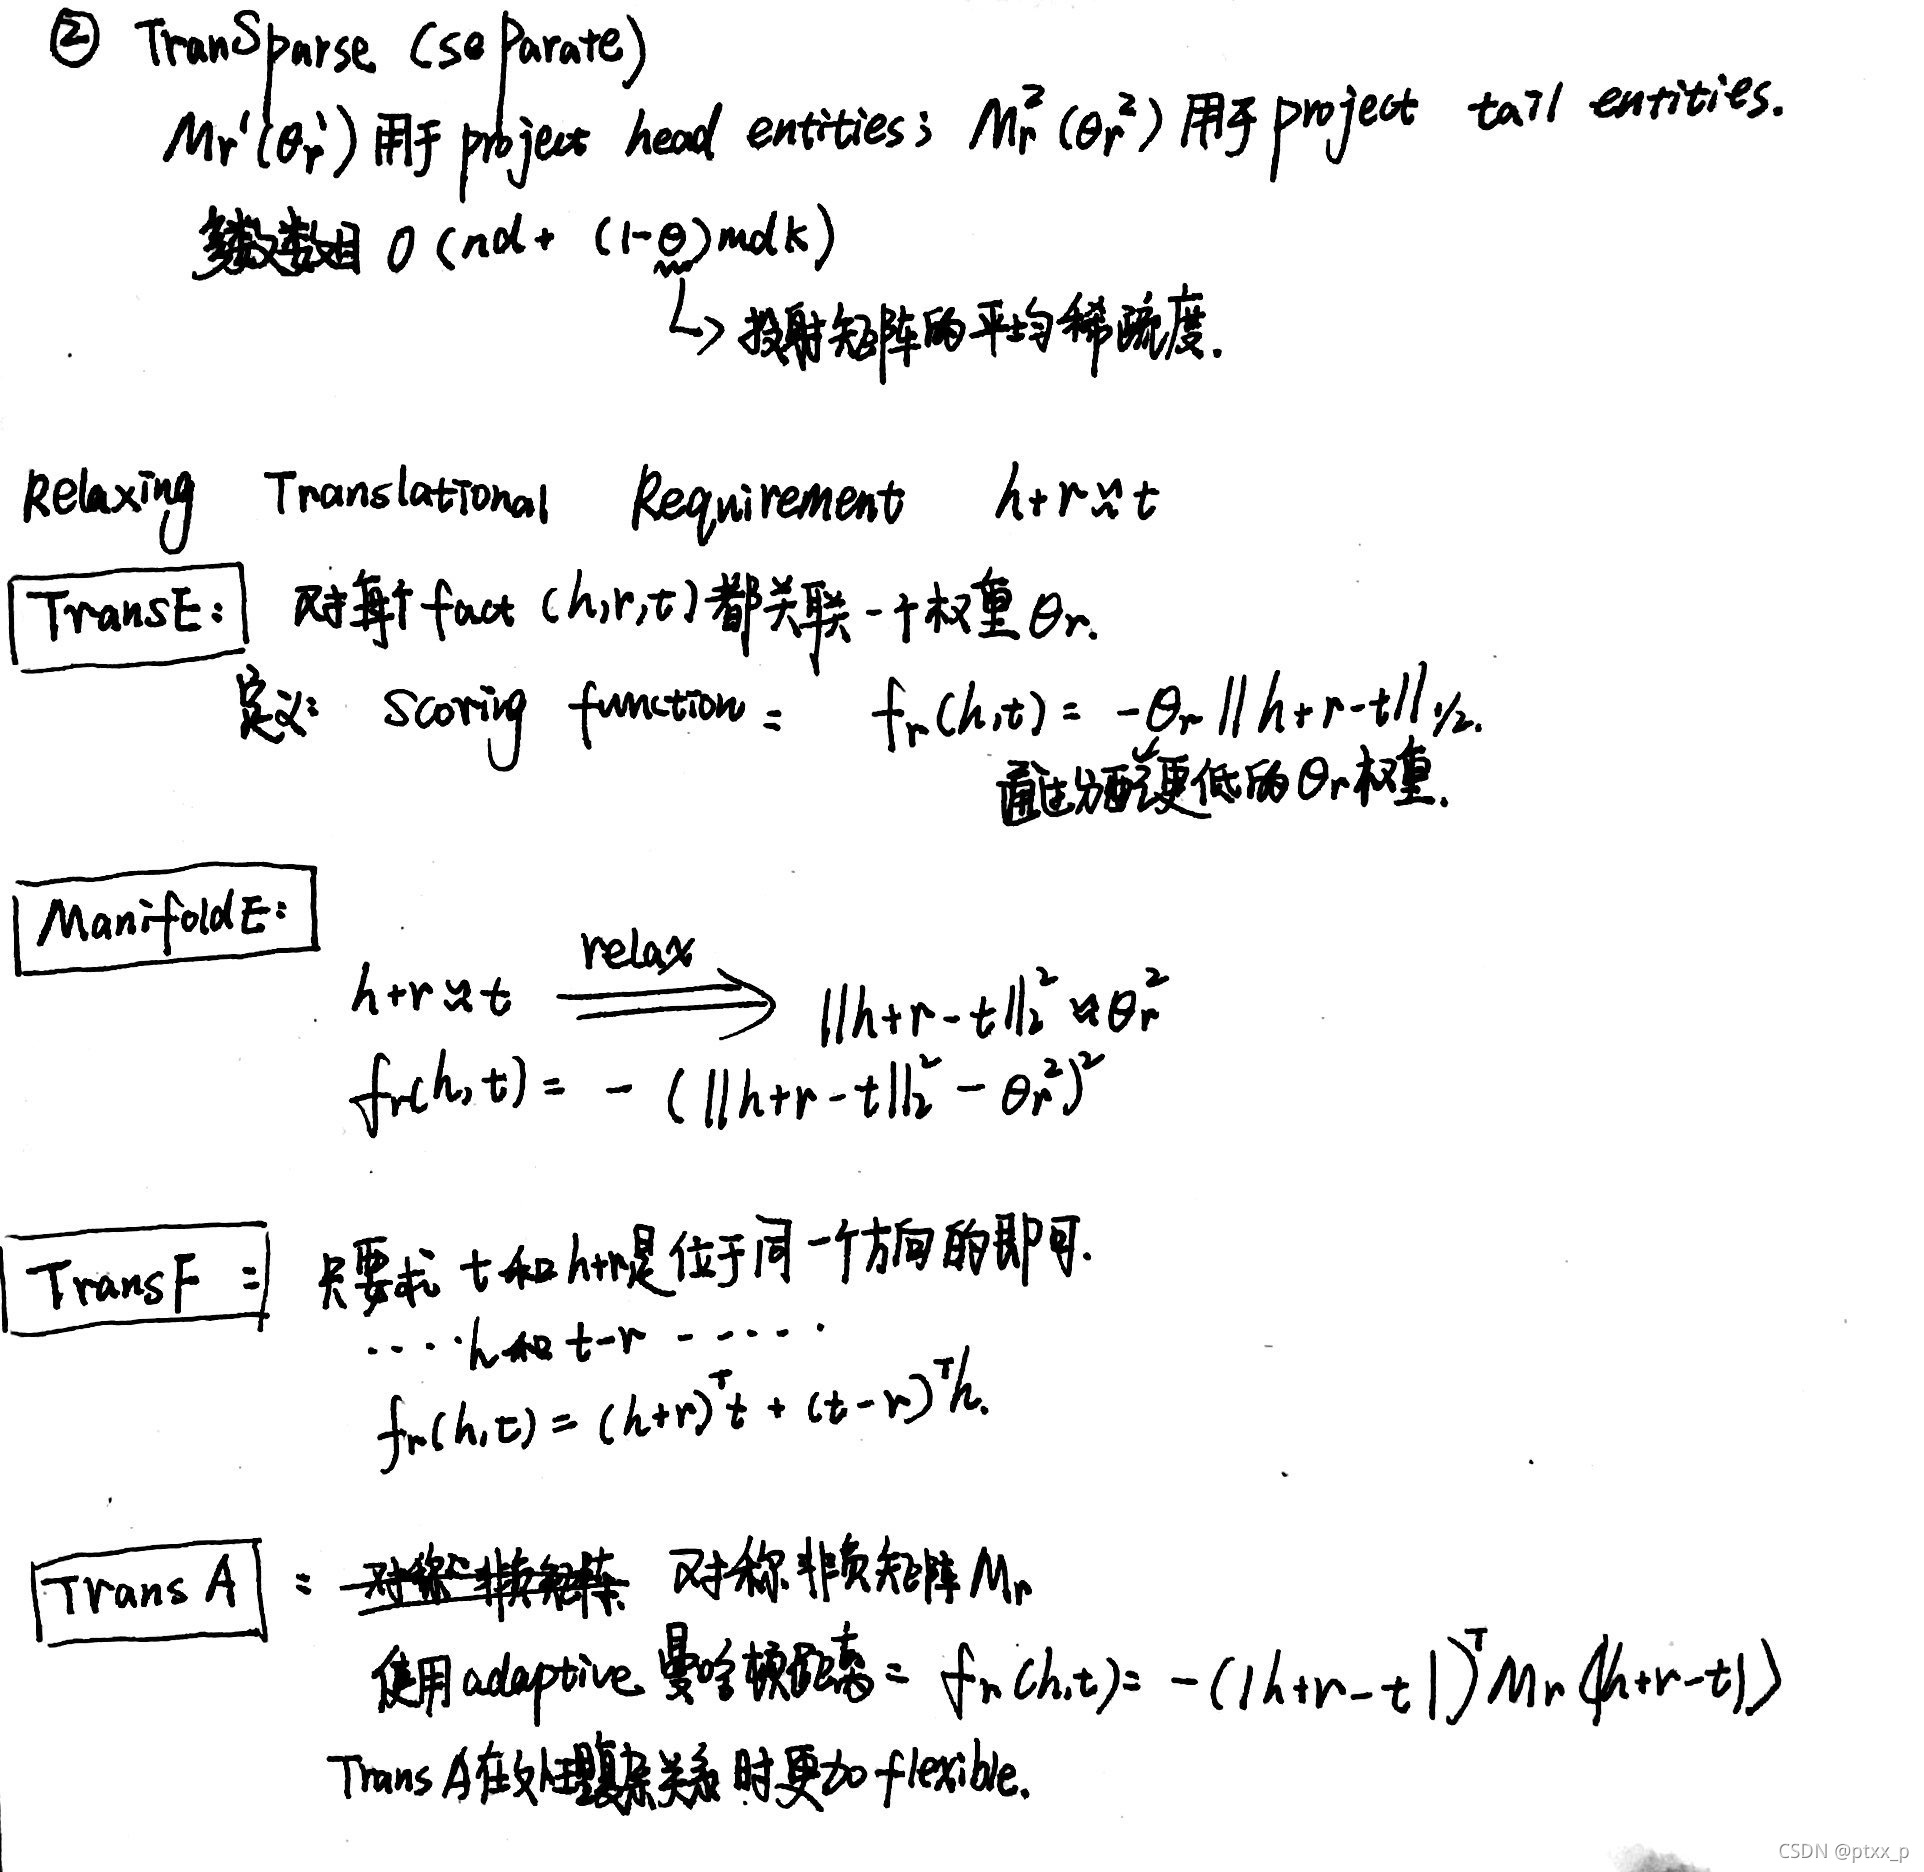 ② TranSparse (separate)
Mr¹(θr¹) 用于 project head entities; Mr²(θr²) 用于 project tail entities.
参数数目 O (nd + (1-θ)mdk)
↳ 投射矩阵的平均稀疏度.
Relaxing Translational Requirement h+r≈t
TransE: 对每个 fact (h,r,t) 都关联一个权重 θr.
定义: scoring function: fr(h,t) = -θr ||h+r-t||1/2.
通过分配更低的 θr 权重.
ManifoldE:
h+r≈t relax ⇒ ||h+r-t||₂² ≈ θr²
fr(h,t) = - (||h+r-t||₂² - θr²)²
TransF: 只要求 t和h+r是位于同一个方向的即可.
····h和 t-r ······
fr(h,t) = (h+r)ᵀt + (t-r)ᵀh.
TransA : 对称非负矩阵 对称非负矩阵 Mr
使用 adaptive 曼哈顿距离: fr(h,t) = -(|h+r-t|)ᵀMr(|h+r-t|)
TransA在处理复杂关系时更加flexible.
CSDN @ptxx_p